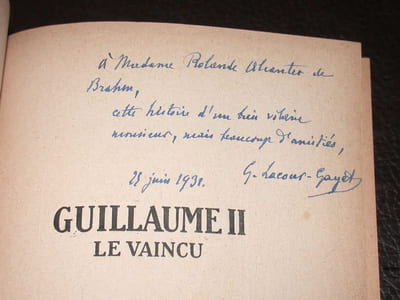 à Madame Rolande Chanter de
Brahm,
cette histoire d'un bien vilain
monsieur, mais beaucoup d'amitiés,
28 juin 1931.
G. Lacour-Gayet
GUILLAUME II
LE VAINCU